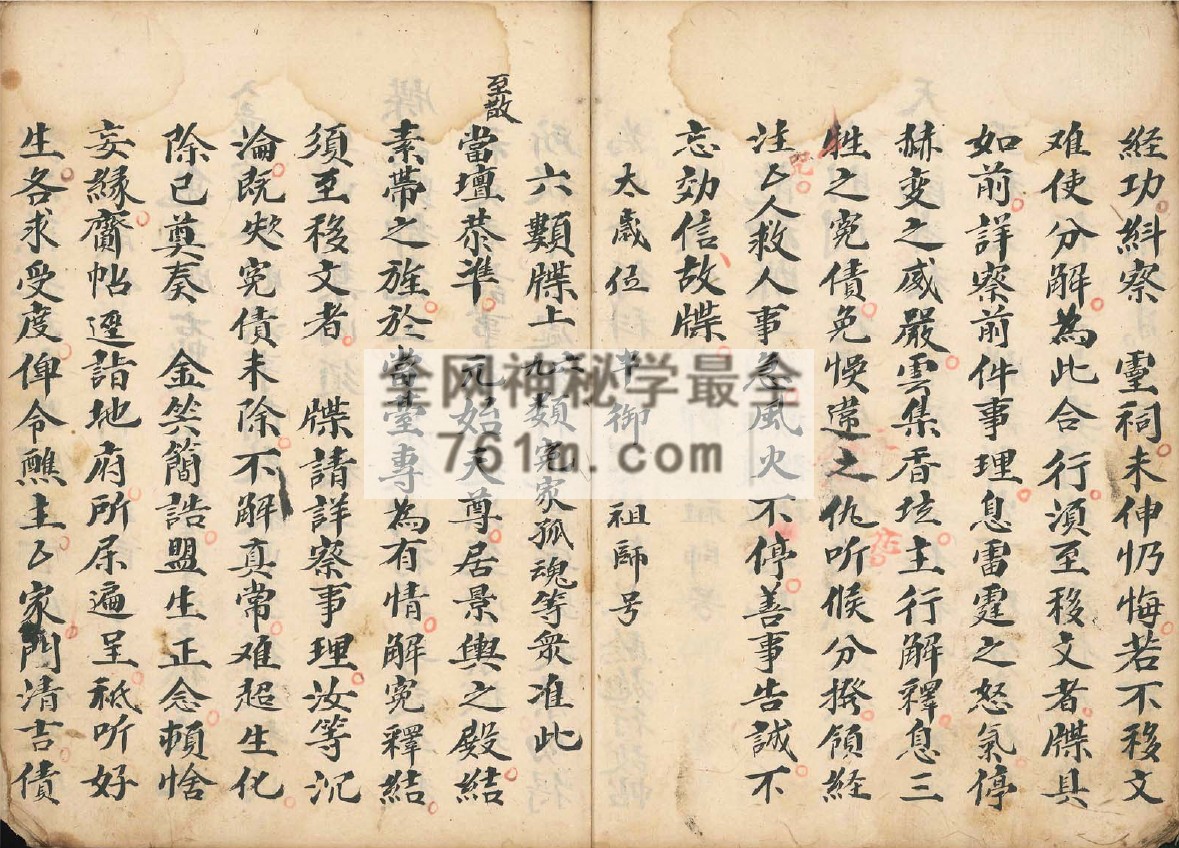 经功糾察　靈祠未伸忏悔若不移文
难使分解為此合行須至移文者牒具
如前詳察前件事理息雷霆之怒氣停
赫变之威嚴雲集香坛主行解釋息三
牲之冤債免悞造之仇听候分撥領経
注亽人救人事急風火不停善事告誠不
忘効信故牒
太歲位　御　祖師号
六類牒上　九六類冤家孤魂等衆准此
至散
當壇恭準　元始天尊居景輿之殿結
素帶之旌於當堂專為有情解冤釋結
須至移文者　牒請詳察事理汝等沉
淪既失冤債未除不解真常难超生化
除已奠奏　金笑簡誥盟生正念頓惜
妄緣齎帖逕詣地府所屆遍呈祇听好
生各求受度俾令醮主亽家門清吉債
全网神秘学最全
761m.com